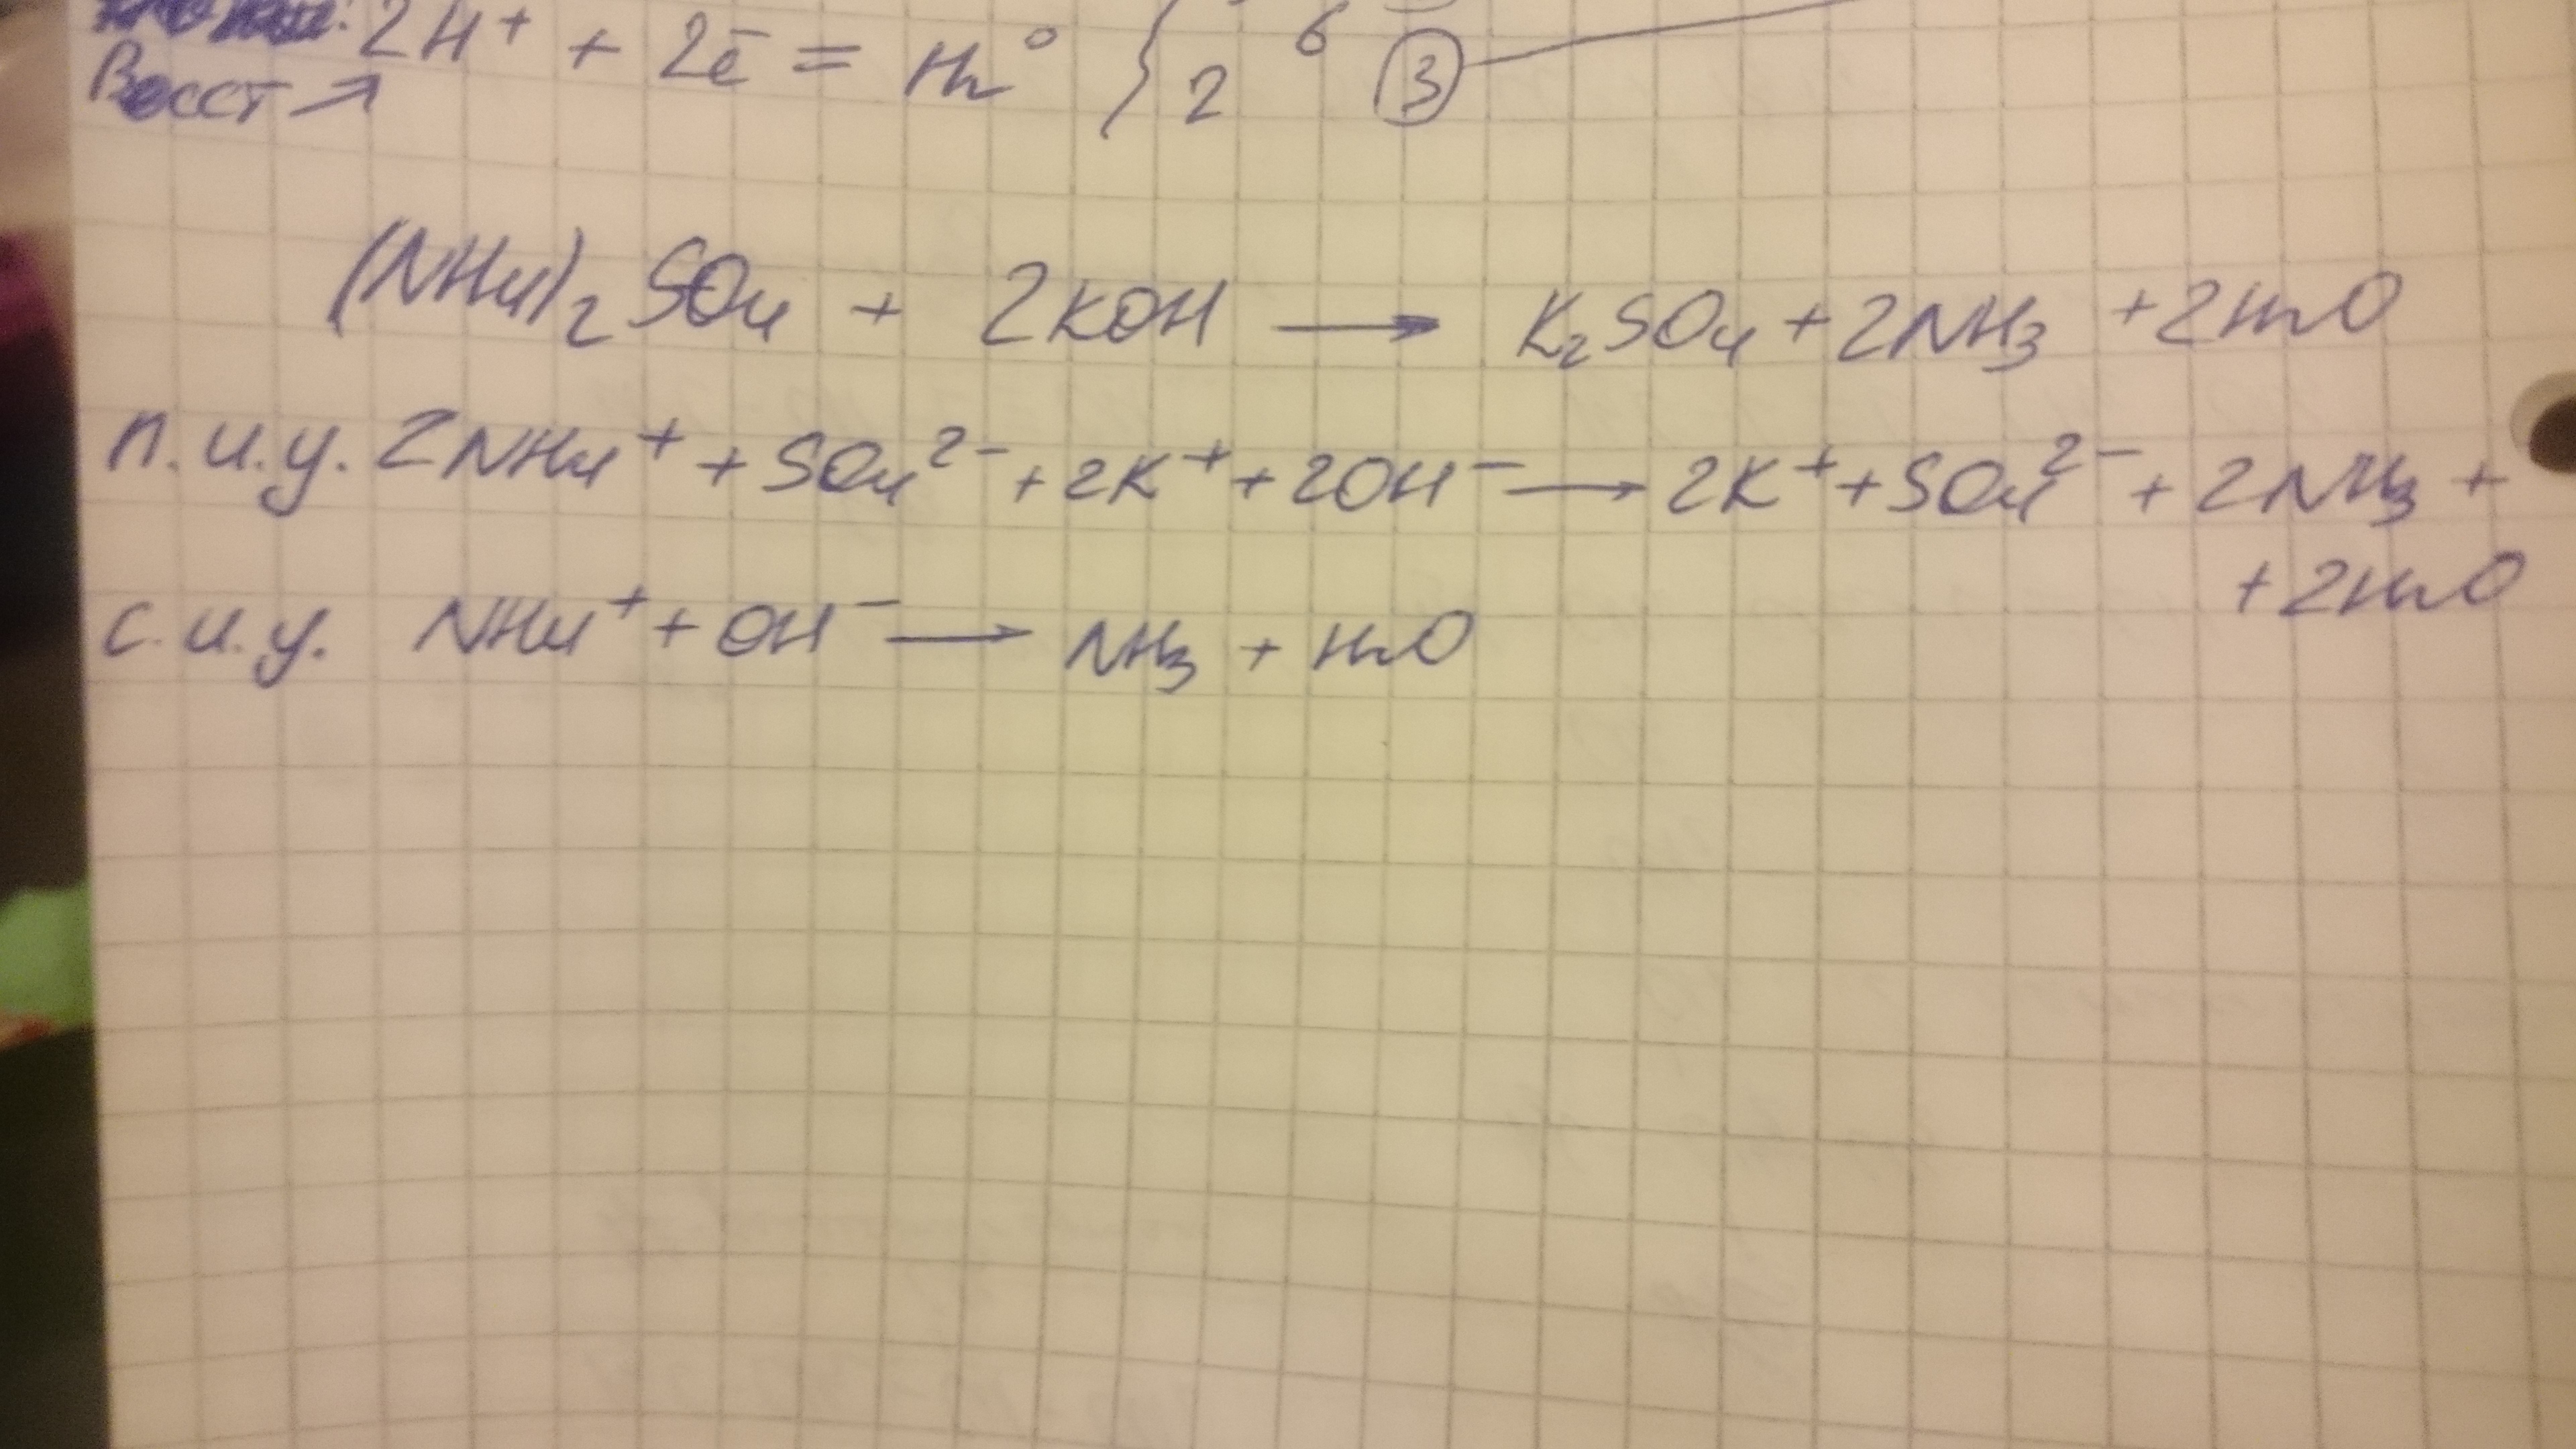 2H⁺ + 2ē = H₂⁰ } 2 6 ③
Восст ↗
(NH₄)₂SO₄ + 2KOH → K₂SO₄ + 2NH₃ + 2H₂O
п.и.у. 2NH₄⁺ + SO₄²⁻ + 2K⁺ + 2OH⁻ → 2K⁺ + SO₄²⁻ + 2NH₃ +
+ 2H₂O
с.и.у. NH₄⁺ + OH⁻ → NH₃ + H₂O